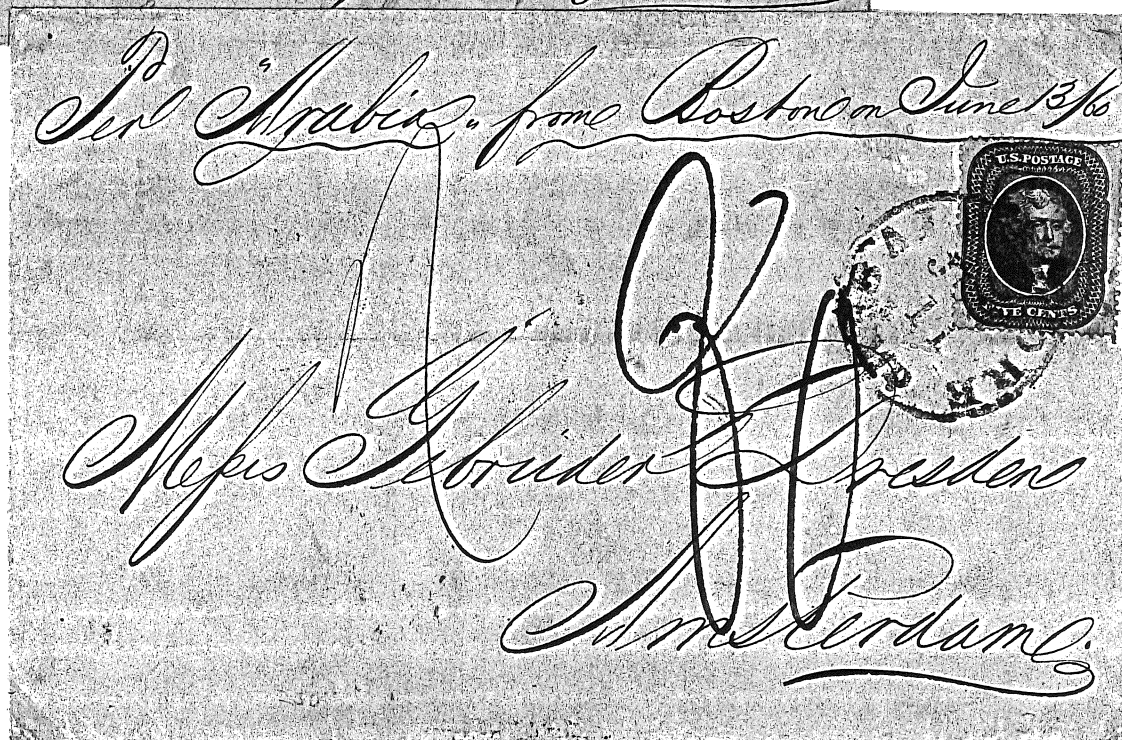 Per "Arabia" from Boston on June 13/60
U.S. POSTAGE
VE CENTS
Messrs Gebruder Dresden
Amsterdam